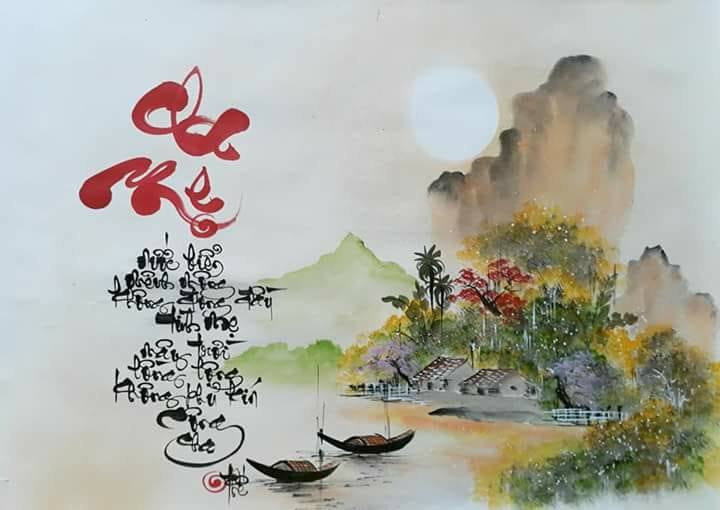 Cha
Mẹ
nước biển
mênh mông
không đong đầy
tình mẹ
mây trời
lồng lộng
không phủ kín
công
cha